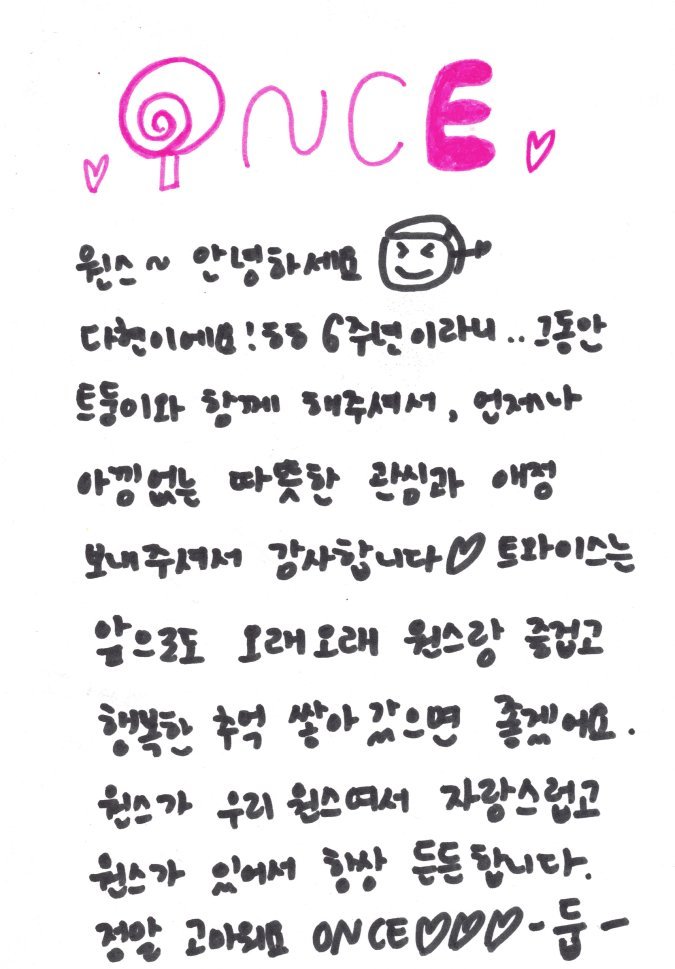 ONCE
원스~ 안녕하세요
다현이에요!ㅎㅎ 6주년이라니.. 그동안
트둥이와 함께 해주셔서, 언제나
아낌없는 따뜻한 관심과 애정
보내주셔서 감사합니다♡ 트와이스는
앞으로도 오래오래 원스랑 즐겁고
행복한 추억 쌓아 갔으면 좋겠어요.
원스가 우리 원스여서 자랑스럽고
원스가 있어서 항상 든든합니다.
정말 고마워요 ONCE♡♡♡ -둡-